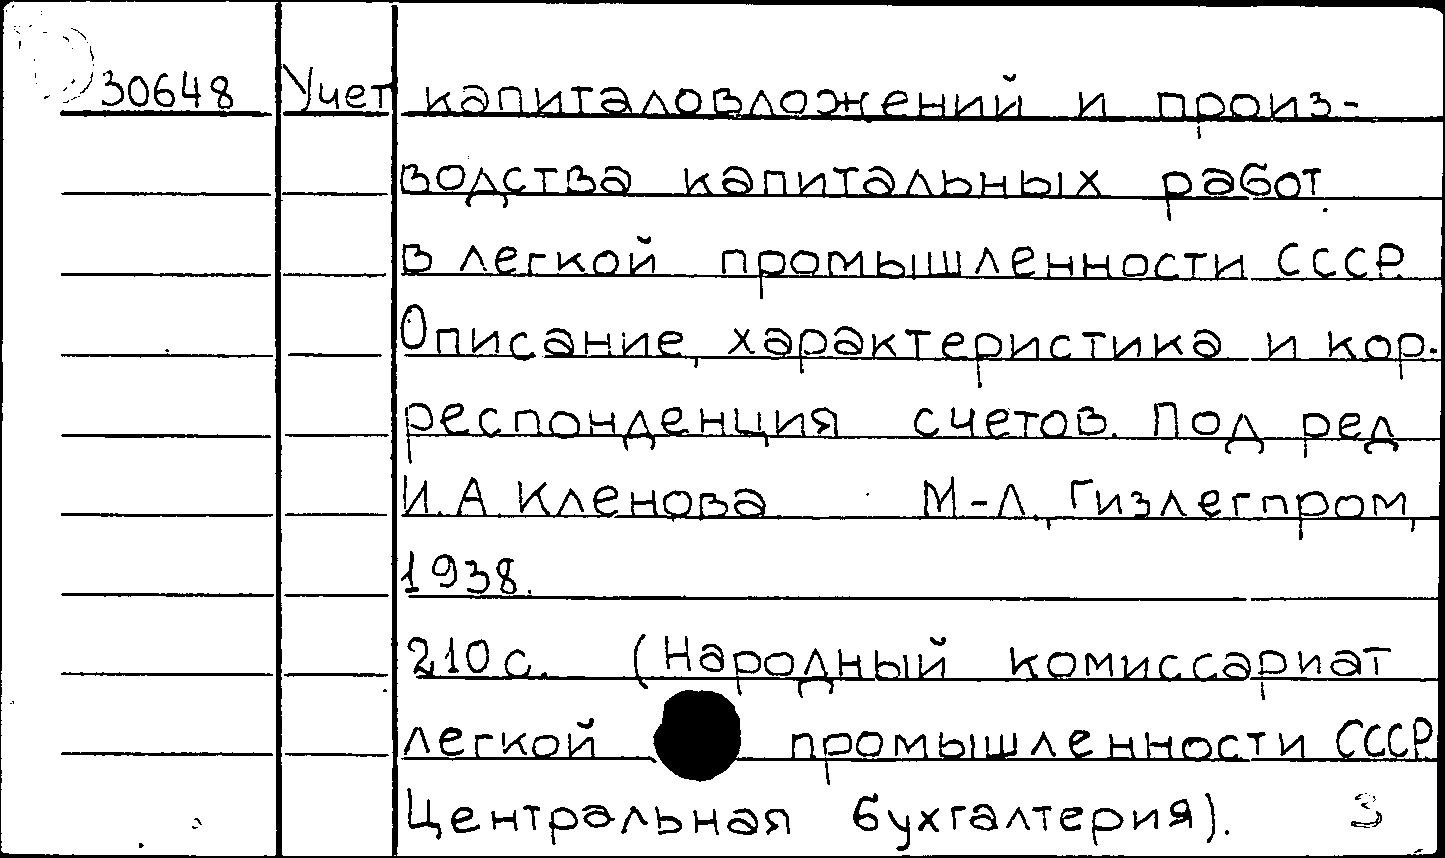 30648 Учет капиталовложений и произ-
водства капитальных работ
в легкой промышленности СССР.
Описание, характеристика и кор-
респонденция счетов. Под ред
И.А. Кленова М-Л., Гизлегпром,
1938.
210 с. (Народный комиссариат
легкой промышленности СССР.
Центральная бухгалтерия). 3